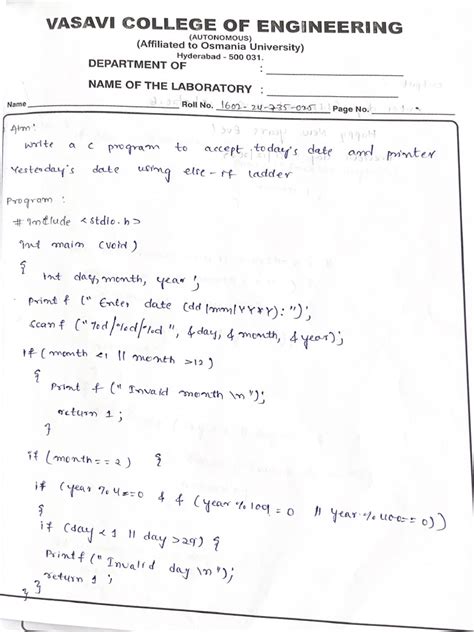 VASAVI COLLEGE OF ENGINEERING
(AUTONOMOUS)
(Affiliated to Osmania University)
Hyderabad - 500 031.
DEPARTMENT OF :
NAME OF THE LABORATORY :
Name Roll No. 1602-24-735-025 Page No.
Aim:
Write a c program to accept today's date and printer
Yesterday's date using else-if ladder
Program :
# include <stdio.h>
int main (void)
{
int day, month, year ;
printf (" Enter date (dd/mm/YYYY): ");
scanf ("%d/%d/%d ", &day, & month, & year);
if (month <1 || month >12)
{
Print f (" Invalid month \n");
return 1 ;
}
if (month == 2) {
if (year % 4==0 & & (year % 100 = 0 || year % 400 == 0))
{
if (day < 1 || day > 29) {
Printf (" Invalid day \n");
return 1 ;
} }